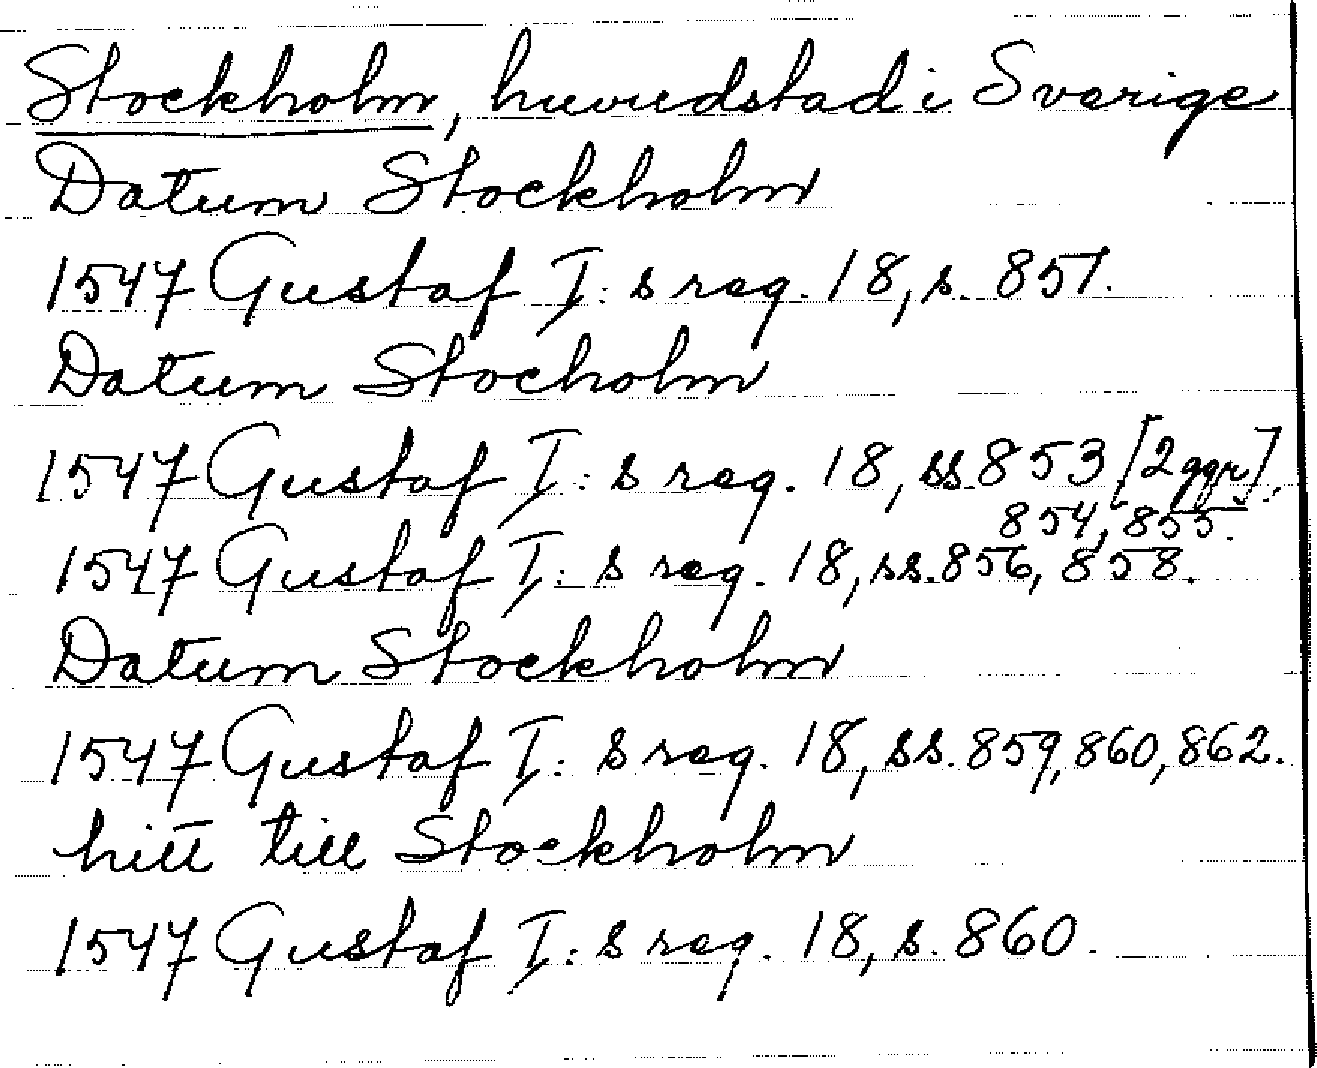 Stockholm, huvudstad i Sverige
Datum Stockholm
1547 Gustaf I:s reg. 18, s. 851.
Datum Stocholm
1547 Gustaf I:s reg. 18, ss. 853 [2 ggr],
854, 855.
1547 Gustaf I:s reg. 18, ss. 856, 858.
Datum Stockholm
1547 Gustaf I:s reg. 18, ss. 859, 860, 862.
hitt till Stockholm
1547 Gustaf I:s reg. 18, s. 860.